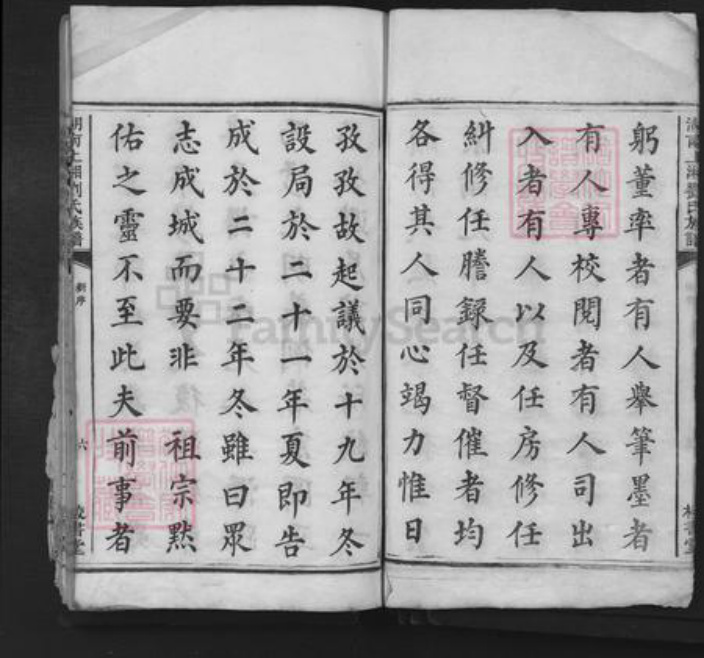 躬董率者有人舉筆墨者
有人專校閱者有人司出
入者有人以及任房修任
糾修任謄錄任督催者均
各得其人同心竭力惟日
孜孜故起議於十九年冬
設局於二十一年夏即告
成於二十二年冬雖曰眾
志成城而要非 祖宗默
佑之靈不至此夫前事者
新序
六
FamilySearch